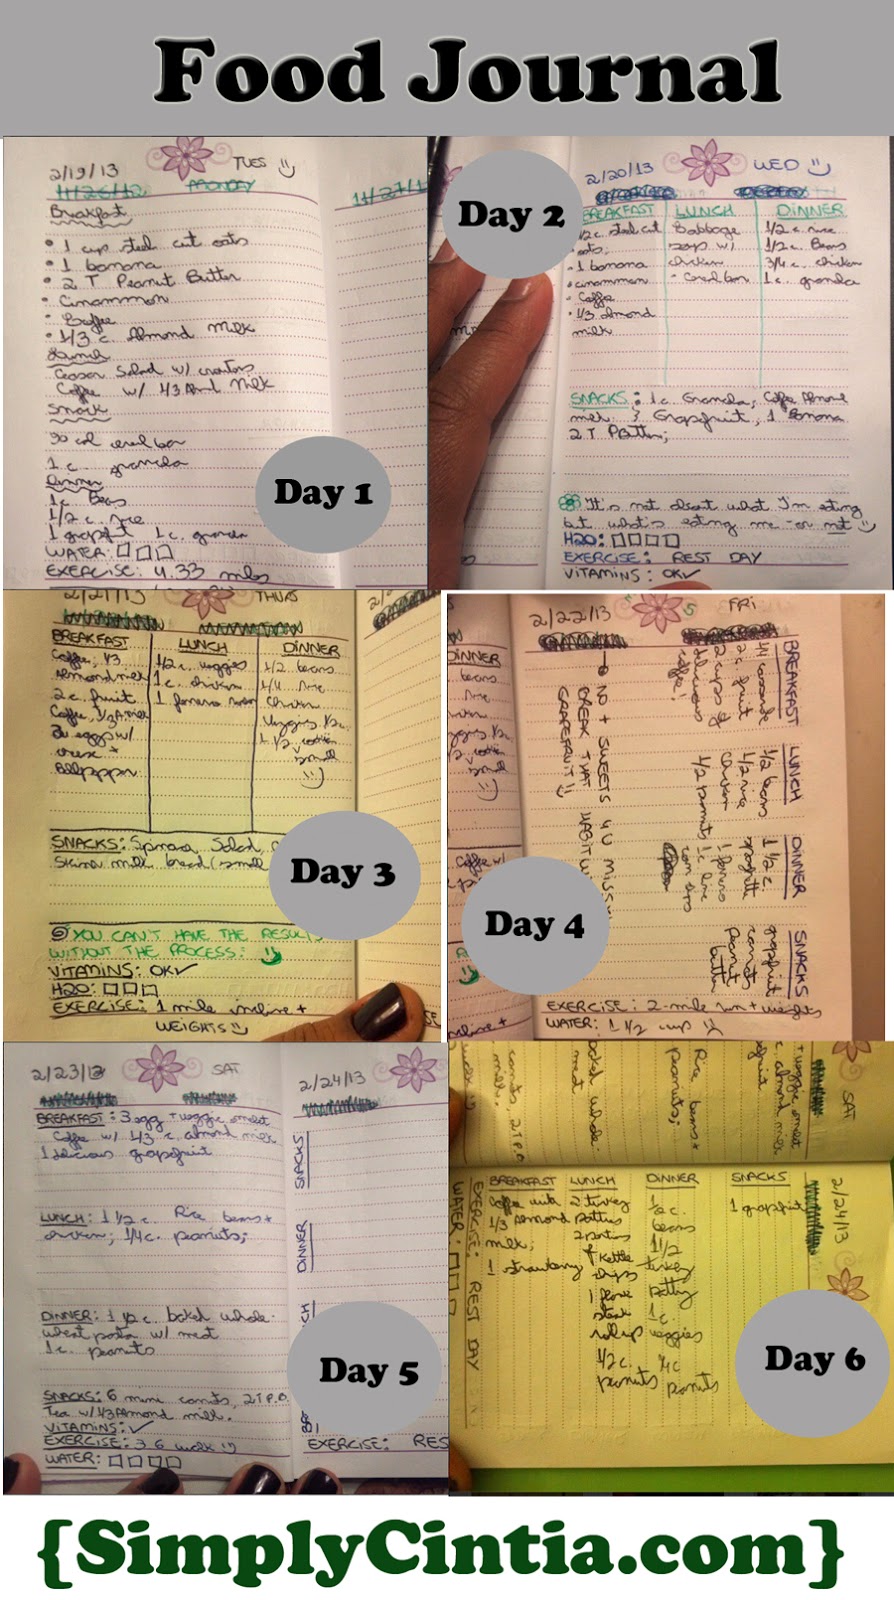 Food Journal
2/19/13 TUES
11/26/12 MONDAY 11/27/1
Breakfast
• 1 cup steel cut oats
• 1 banana
• 2 T Peanut Butter
• Cinammon
• Coffee
• 1/3 c. Almond Milk
Lunch
Ceasar Salad w/ croutons
Coffee w/ 1/3 Almd Milk
Snack
90 cal cereal bar
1 c. granola
Dinner
1 c. Beans
1/2 c. rice
1 grapefruit 1 c. granola
WATER: □□□
EXERCISE: 4.33 miles
Day 1
2/20/13 WED
Day 2
BREAKFAST LUNCH DINNER
1/2 c. steel cut Cabbage 1/2 c. rice
oats; soup w/ 1/2 c. Beans
• 1 banana chicken 3/4 c. chicken
• cinammon • Cereal bar 1 c. granola
• Coffee
• 1/3 almond
milk
SNACKS: 1 c. Granola; Coffee Almond
milk & Grapefruit, 1 Banana
2 T PButter;
It's not about what I'm eating
but what's eating me - or not
H2O: □□□□
EXERCISE: REST DAY
VITAMINS: OK✓
2/21/13 THURS
BREAKFAST LUNCH DINNER
Coffee, 1/3 1/2 c. veggies 1/2 beans
Almond milk 1 c. chicken 1/4 rice
2 c. fruit 1 chicken
Coffee, 1/3 A. milk veggies 1/2 c.
2 eggs w/ 1 1/2
cheese + small
Bellpepper
SNACKS: Salad,
milk bread (small
Day 3
YOU CAN'T HAVE THE RESULTS
WITHOUT THE PROCESS!
VITAMINS: OK✓
H2O: □□□
EXERCISE: 1 mile incline +
WEIGHTS
2/22/13 FRI
BREAKFAST
2 c. fruit
2 cups of
delicious
coffee!
LUNCH
1/2 beans
1/2 rice
chicken
1/2 peanuts
DINNER
1 1/2 c.
spaghetti
SNACKS
grapefruit
carrots
Peanut
butter
NO + SWEETS 4 U MISSY
BREAK THAT HABIT W/
GRAPEFRUIT!
Day 4
EXERCISE: 2-mile run + weights
WATER: 1 1/2 cup
2/23/13 SAT
BREAKFAST: 3 egg + veggie omelet
Coffee w/ 1/3 c. almond milk
1 delicious grapefruit
LUNCH: 1 1/2 c. Rice beans +
chicken; 1/4 c. peanuts;
DINNER: 1 1/2 c. baked whole-
wheat pasta w/ meat
1 c. peanuts
SNACKS: 6 mini carrots, 2 T P.B.
Tea w/ 1/3 Almond milk.
VITAMINS: ✓
EXERCISE: 3.6 walk
WATER: □□□□
2/24/13
SNACKS
DINNER
CH
EXERCISE: RES
Day 5
SAT
2/24/13
BREAKFAST LUNCH DINNER SNACKS
Coffee with 2 turkey 1/2 c. 1 grapefruit
1/3 Almond patties beans
milk; 2 portions 1 1/2
1 strawberry of Kettle turkey
chips patty
1 1 c.
steak veggies
wrap 1/4 c
1/2 c. peanuts
peanuts
EXERCISE: REST DAY
WATER: □□□
Day 6
{SimplyCintia.com}